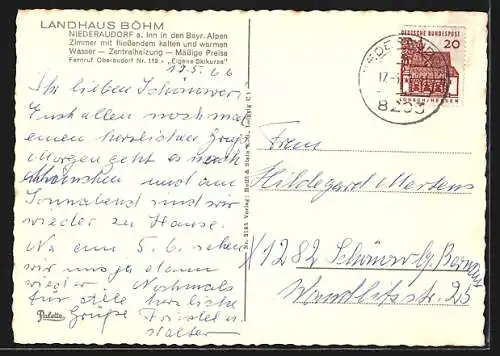 LANDHAUS BÖHM
NIEDERAUDORF a. Inn in den Bayr. Alpen
Zimmer mit fließendem kalten und warmen
Wasser — Zentralheizung — Mäßige Preise
Fernruf Oberaudorf Nr. 118 - „Eigene Skikurse"
17.5.66
Ihr lieben Schönwer.
Euch allen nochmal
einen herzlichen Gruß.
Morgen geht es nach
und am
Sonnabend sind wir
wieder zu Hause.
Na am 5.6. sehen
wir uns ja dann
wieder. Nochmals
für alle herzliche
Grüße Friedel u.
Walter
Palette
DEUTSCHE BUNDESPOST
20
LORSCH/HESSEN
17.-5.
8203
Frau
Hildegard Mertens
1282 Schönw. bg. Bernau
Wandlitzstr. 25